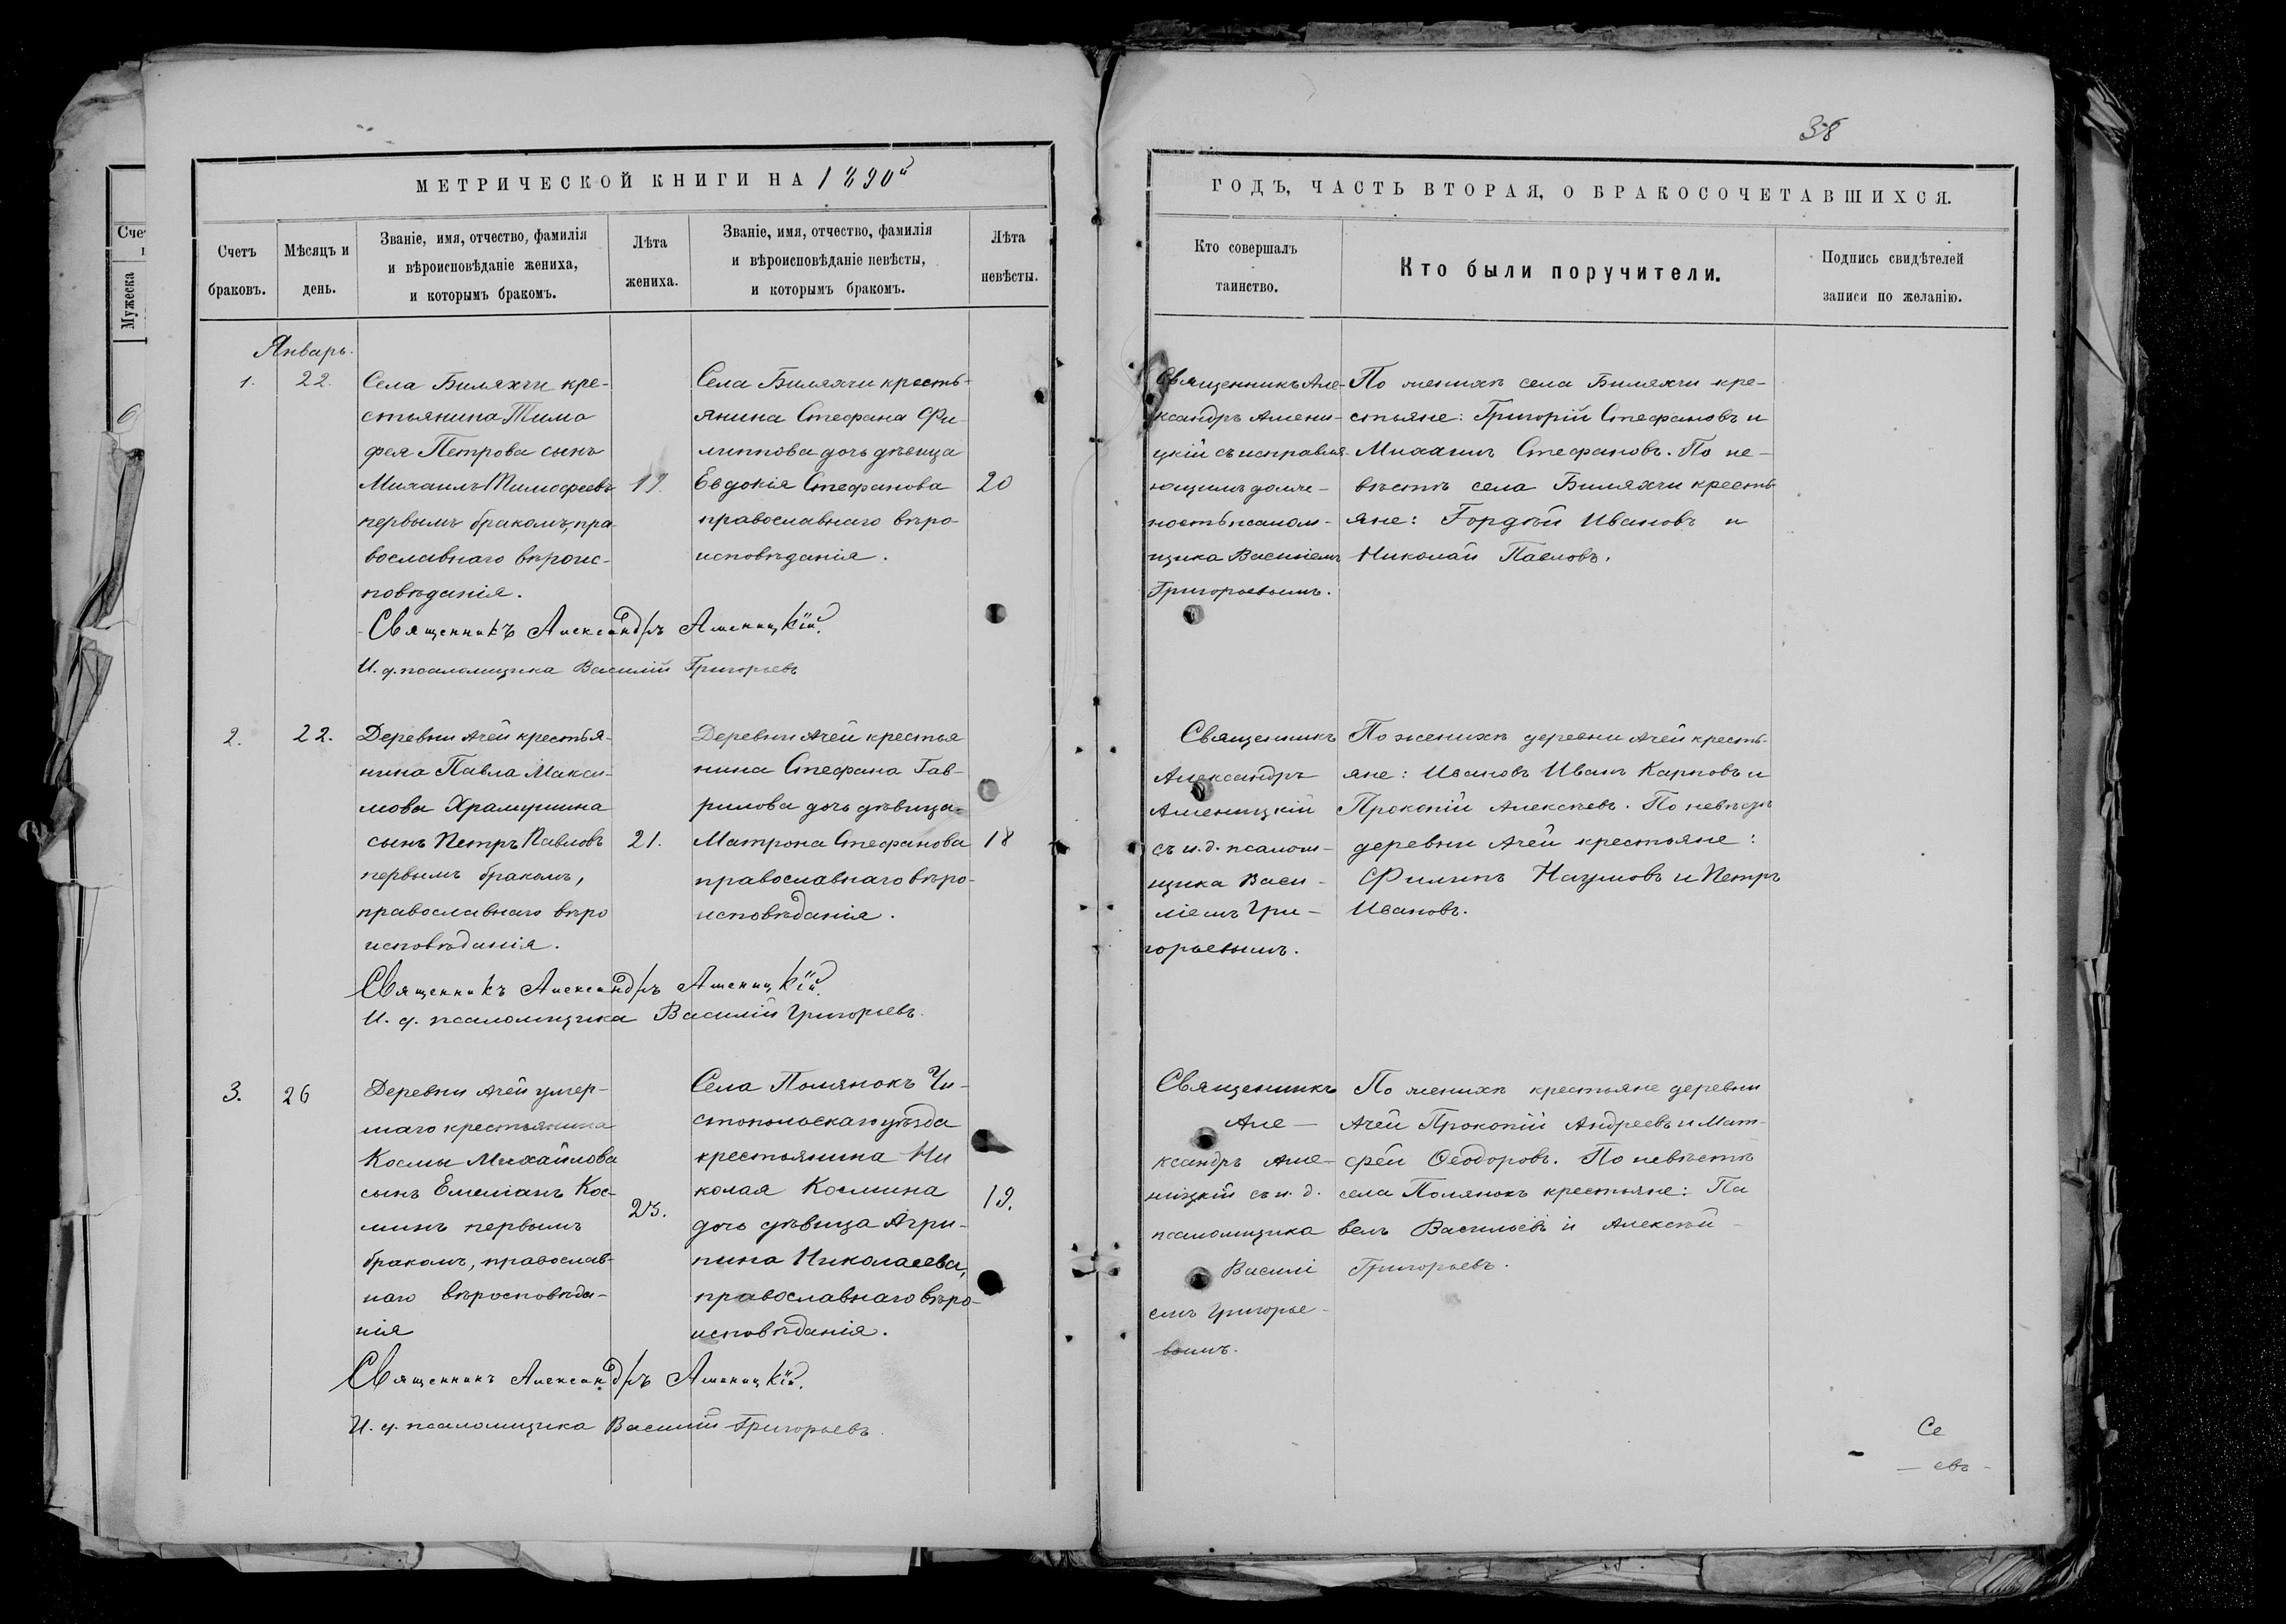 38
МЕТРИЧЕСКОЙ КНИГИ НА 1890й
ГОДЪ, ЧАСТЬ ВТОРАЯ, О БРАКОСОЧЕТАВШИХСЯ.
Счетъ
браковъ.
Мѣсяцъ и
день.
Званіе, имя, отчество, фамилія
и вѣроисповѣданіе жениха,
и которымъ бракомъ.
Лѣта
жениха.
Званіе, имя, отчество, фамилія
и вѣроисповѣданіе невѣсты,
и которымъ бракомъ.
Лѣта
невѣсты.
Кто совершалъ
таинство.
Кто были поручители.
Подпись свидѣтелей
записи по желанію.
Мужеска
Январь.
1.
22.
Села Биляхчи кре-
стьянина Тимо
фея Петрова сынъ
Михаилъ Тимофеевъ
первымъ бракомъ, пра-
вославнаго вѣроис-
повѣданія.
19.
Села Биляхчи кресть-
янина Стефана Фи-
липпова дочь дѣвица
Евдокія Стефанова
православнаго вѣро-
исповѣданія.
20
Священникъ Але-
ксандръ Амени-
цкій съ исправля-
ющимъ долж-
ность псалом-
щика Василіемъ
Григорьевымъ.
По женихѣ села Биляхчи кре-
стьяне: Григорій Стефановъ и
Михаилъ Стефановъ. По не-
вѣстѣ села Биляхчи кресть-
яне: Гордѣй Ивановъ и
Николай Павловъ.
Священникъ Александръ Аменицкій.
И. д. псаломщика Василій Григорьевъ
2.
22.
Деревни Ачей крестья-
нина Павла Макси-
мова Храмушина
сынъ Петръ Павловъ
первымъ бракомъ,
православнаго вѣро
исповѣданія.
21.
Деревни Ачей крестья
нина Стефана Гав-
рилова дочь дѣвица-
Матрона Стефанова
православнаго вѣро-
исповѣданія.
18
Священникъ
Александръ
Аменицкій
съ и. д. псалом-
щика Васи-
ліемъ Гри-
горьевымъ.
По женихѣ деревни Ачей кресть-
яне: Ивановъ Иванъ Карповъ и
Прокопій Алексѣевъ. По
деревни Ачей крестьяне:
Филипъ Наумовъ и Петръ
Ивановъ.
Священникъ Александръ Аменицкій.
И. д. псаломщика Василій Григорьевъ.
3.
26
Деревни Ачей умер-
шаго крестьянина
Космы Михайлова
сынъ Емеліанъ Кос-
минъ первымъ
бракомъ, православ-
наго вѣроисповѣда-
нія
25.
Села Полянокъ Чи-
стопольскаго уѣзда
крестьянина Ни
колая Космина
дочь дѣвица Агри-
пина Николаева,
православнаго вѣро-
исповѣданія.
19.
Священникъ
Але-
ксандръ Аме-
ницкій съ и. д.
псаломщика
Василі
емъ Григорье-
вымъ.
По женихѣ крестьяне деревни
Ачей Прокопій Андреевъ и Мат-
фей Ѳеодоровъ. По невѣстѣ
села Полянокъ крестьяне: Па
велъ Васильевъ и Алексѣй
Григорьевъ.
Священникъ Александръ Аменицкій.
И. д. псаломщика Василій Григорьевъ.
Се
евъ